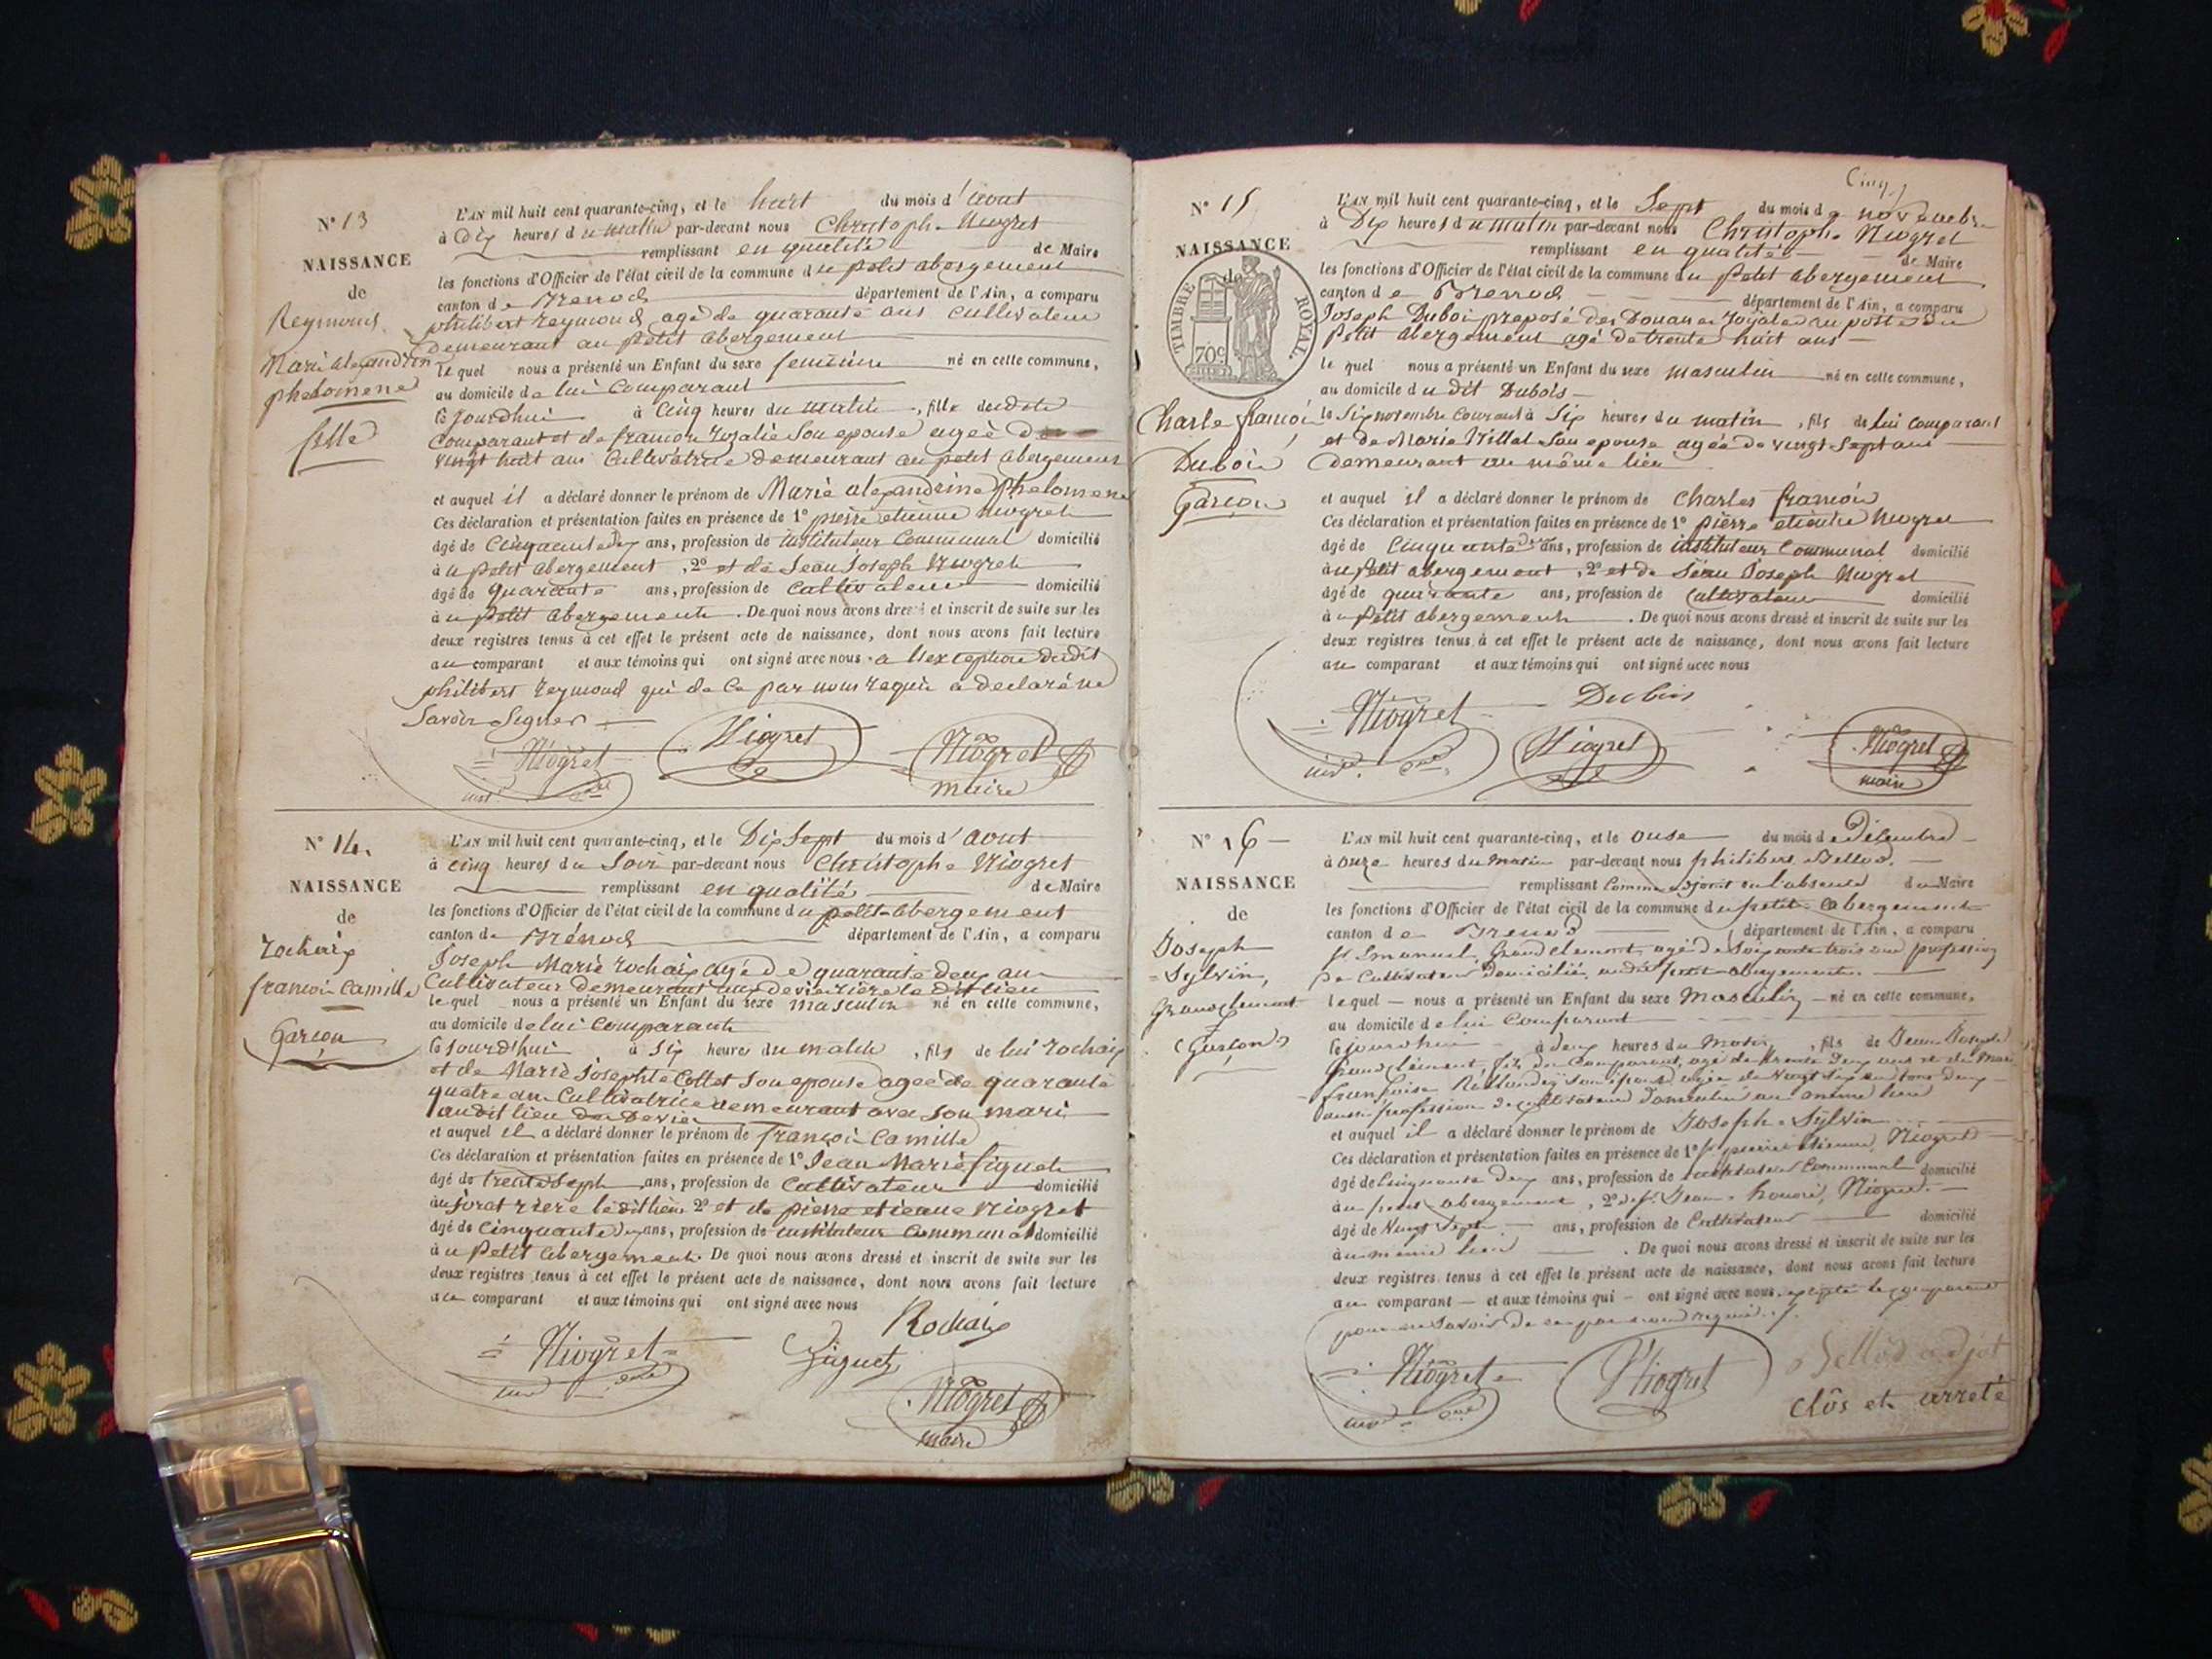 N° 13
NAISSANCE
de
Reymond
Marie alexandrine
phelomene
fille
L'AN mil huit cent quarante-cinq, et le huit du mois d'aout
à Dix heures du matin par-devant nous Christophe Niogret
remplissant en qualité de Maire
les fonctions d'Officier de l'état civil de la commune du petit abergement
canton de Brenod département de l'Ain, a comparu
philibert reymond agé de quarante ans cultivateur
Demeurant au petit abergement
le quel nous a présenté un Enfant du sexe feminin né en cette commune,
au domicile de lui comparant
le jourdhui à cinq heures du matin, fille dudit
comparant et de rozalie son epouse ageé de
vingt huit ans cultivatrice demeurant au petit abergement
et auquel il a déclaré donner le prénom de Marie alexandrine phelomene
Ces déclaration et présentation faites en présence de 1° pierre etienne niogret
âgé de cinquante deux ans, profession de instituteur communal domicilié
à u petit abergement, 2° et de Jean Joseph Niogret
âgé de quarante ans, profession de cultivateur domicilié
à u petit abergement. De quoi nous avons dressé et inscrit de suite sur les
deux registres tenus à cet effet le présent acte de naissance, dont nous avons fait lecture
au comparant et aux témoins qui ont signé avec nous a l'exception dudit
philibert reymond qui de ce par nous requis a declaré ne
savoir signer
Niogret Niogret Niogret
maire
N° 14.
NAISSANCE
de
rochaix
francois camille
Garçon
L'AN mil huit cent quarante-cinq, et le Dix Sept du mois d'aout
à cinq heures du soir par-devant nous Christophe Niogret
remplissant en qualité de Maire
les fonctions d'Officier de l'état civil de la commune du petit abergement
canton de Brénod département de l'Ain, a comparu
Joseph Marie rochaix agé de quarante deux ans
Cultivateur demeurant riere le dit lieu
le quel nous a présenté un Enfant du sexe masculin né en cette commune,
au domicile de lui comparant
le jourd'hui à six heures du matin, fils de lui rochaix
et de Marie Josephte Collet son epouse ageé de quarante
quatre ans Cultivatrice demeurant avec son mari
audit lieu
et auquel il a déclaré donner le prénom de françois Camille
Ces déclaration et présentation faites en présence de 1° Jean Marie figuet
âgé de trente sept ans, profession de cultivateur domicilié
au jorat riere le dit lieu 2° et de pierre etienne Niogret
âgé de cinquante deux ans, profession de instituteur communal domicilié
à u petit abergement. De quoi nous avons dressé et inscrit de suite sur les
deux registres tenus à cet effet le présent acte de naissance, dont nous avons fait lecture
au comparant et aux témoins qui ont signé avec nous
Rochaix
Niogret figuet
Niogret
maire
cinq
N° 15
NAISSANCE
de
TIMBRE ROYAL.
70c
Charle françois
Dubois
Garçon
L'AN mil huit cent quarante-cinq, et le Sept du mois de novembre
à Dix heures du matin par-devant nous Christophe Niogret
remplissant en qualité de Maire
les fonctions d'Officier de l'état civil de la commune du petit abergement
canton de Brenod département de l'Ain, a comparu
Joseph Dubois preposé des Douanes royales au poste du
petit abergement agé de trente huit ans
le quel nous a présenté un Enfant du sexe masculin né en cette commune,
au domicile du dit Dubois
le six novembre courant à six heures du matin, fils de lui comparant
et de Marie Villet son epouse agée de vingt sept ans
demeurant au même lieu
et auquel il a déclaré donner le prénom de Charles françois
Ces déclaration et présentation faites en présence de 1° pierre etienne Niogret
âgé de cinquante deux ans, profession de instituteur communal domicilié
à u petit abergement, 2° et de Jean Joseph Niogret
âgé de quarante ans, profession de cultivateur domicilié
à u petit abergement. De quoi nous avons dressé et inscrit de suite sur les
deux registres tenus à cet effet le présent acte de naissance, dont nous avons fait lecture
au comparant et aux témoins qui ont signé avec nous
Niogret Dubois
Niogret Niogret
maire
N° 16
NAISSANCE
de
Joseph
Sylvin,
Grandclement
(Garçon)
L'AN mil huit cent quarante-cinq, et le onse du mois de Décembre
à onze heures du matin par-devant nous philibert Bellod.
remplissant comme adjoint en l'absence du Maire
les fonctions d'Officier de l'état civil de la commune du petit abergement
canton de Brenod département de l'Ain, a comparu
Emanuel Grandclement, agé de Soixante trois ans profession
de Cultivateur domicilié audit petit abergement.
le quel nous a présenté un Enfant du sexe Masculin né en cette commune,
au domicile de lui comparant
le jourdhui à deux heures du Matin, fils de Jean Joseph
Grandclement, fils du comparant, agé de trente deux ans et de Marie
françoise son epouse agée de vingt six ans tous deux
profession de cultivateur domiciliés au même lieu
et auquel il a déclaré donner le prénom de Joseph Sylvin
Ces déclaration et présentation faites en présence de 1° pierre etienne Niogret
âgé de cinquante deux ans, profession de instituteur communal domicilié
au petit abergement, 2° de Jean honoré Niogret.
âgé de vingt sept ans, profession de Cultivateur domicilié
à u même lieu. De quoi nous avons dressé et inscrit de suite sur les
deux registres tenus à cet effet le présent acte de naissance, dont nous avons fait lecture
au comparant et aux témoins qui ont signé avec nous, excepté le comparant
pour ne savoir de ce par nous requis.
Niogret Niogret Bellod adjot
clôs et arreté